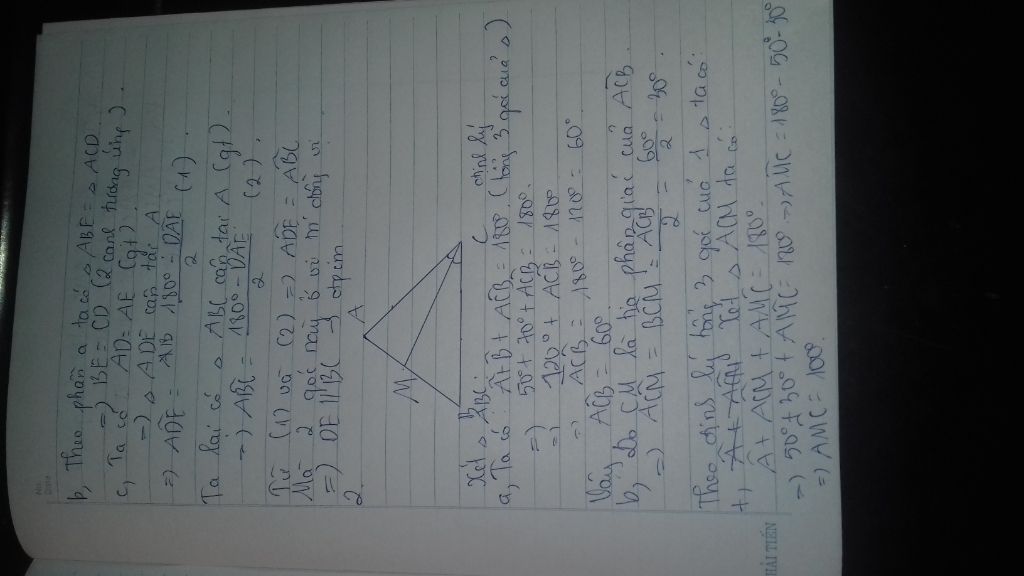 No.
Date
b, Theo phần a ta có △ ABE = △ ACD
=> BE = CD (2 cạnh tương ứng).
c, Ta có: AD = AE (gt).
=> △ ADE cân tại A
=> ADE = 180° - DAE / 2 (1).
Ta lại có △ ABC cân tại A (gt).
=> ABC = 180° - DAE / 2 (2).
Từ (1) và (2) => ADE = ABC
Mà 2 góc này ở vị trí đồng vị
=> DE // BC => đpcm
2.
A
M
B
C
Xét △ ABC. định lý
a, Ta có: A + B + ACB = 180°. (tổng 3 góc của △)
=> 50° + 70° + ACB = 180°.
=> 120° + ACB = 180°
=> ACB = 180° - 120° = 60°
Vậy ACB = 60°
b, Do CM là tia phân giác của ACB.
=> ACM = BCM = ACB / 2 = 60° / 2 = 30°.
Theo định lý tổng 3 góc của 1 △ ta có:
+, Xét △ ACM ta có:
A + ACM + AMC = 180°.
=> 50° + 30° + AMC = 180° => AMC = 180° - 50° - 30°
=> AMC = 100°.
HẢI TIẾN